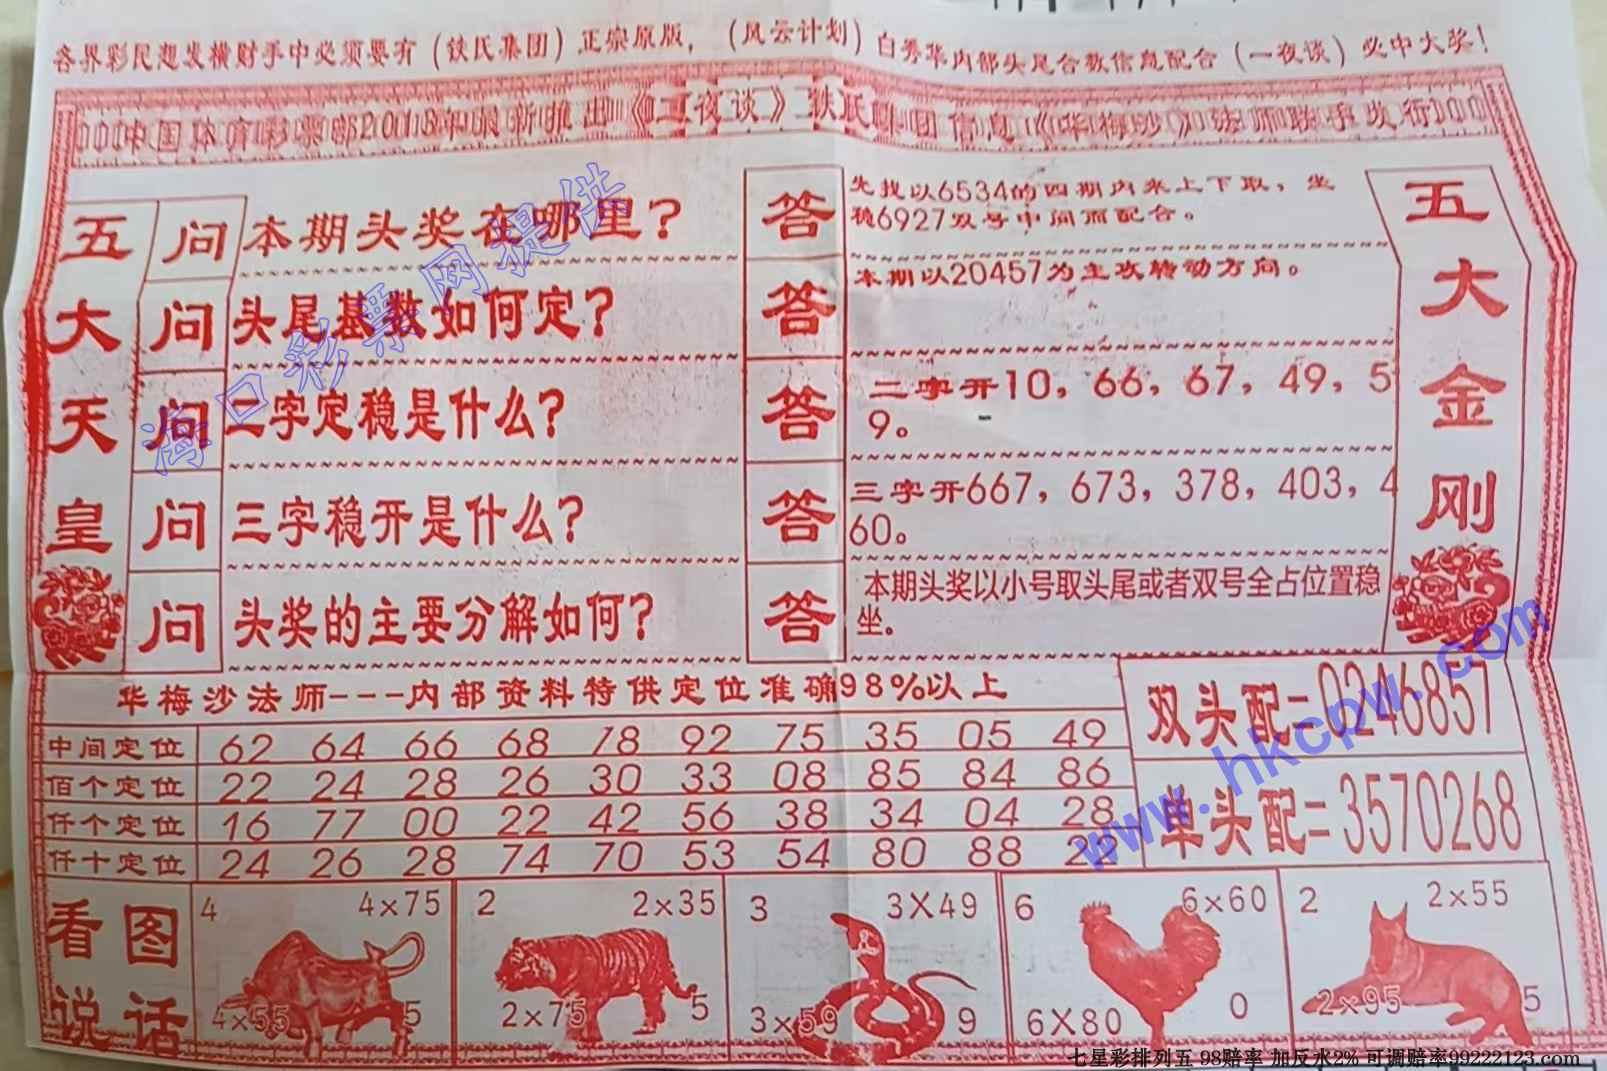 各界彩民想发横财手中必须要有（铁氏集团）正宗原版，（风云计划）白秀华内部头尾合数信息配合（一夜谈）必中大奖！
中国体育彩票部2018年最新推出《一夜谈》铁氏集团信息《华梅沙》法师联手发行
五大天皇
问 本期头奖在哪里？
答 先找以6534的四期内来上下取，坐
稳6927双号中间而配合。
问 头尾基数如何定？
答 本期以20457为主攻转动方向。
问 二字定稳是什么？
答 二字开10，66，67，49，5
9。
问 三字稳开是什么？
答 三字开667，673，378，403，4
60。
问 头奖的主要分解如何？
答 本期头奖以小号取头尾或者双号全占位置稳
坐。
五大金刚
华梅沙法师---内部资料特供定位准确98%以上
中间定位 62 64 66 68 78 92 75 35 05 49
佰个定位 22 24 28 26 30 33 08 85 84 86
仟个定位 16 77 00 22 42 56 38 34 04 28
仟十定位 24 26 28 74 70 53 54 80 88 22
双头配=0246857
单头配=3570268
看图
说话
4 4×75
4×55 5
2 2×35
2×75 5
3 3X49
3×59 9
6 6×60
6X80 0
2 2×55
2×95 5
海口彩票网提供
www.hkcpw.com
七星彩排列五 98赔率 加反水2% 可调赔率99222123.com